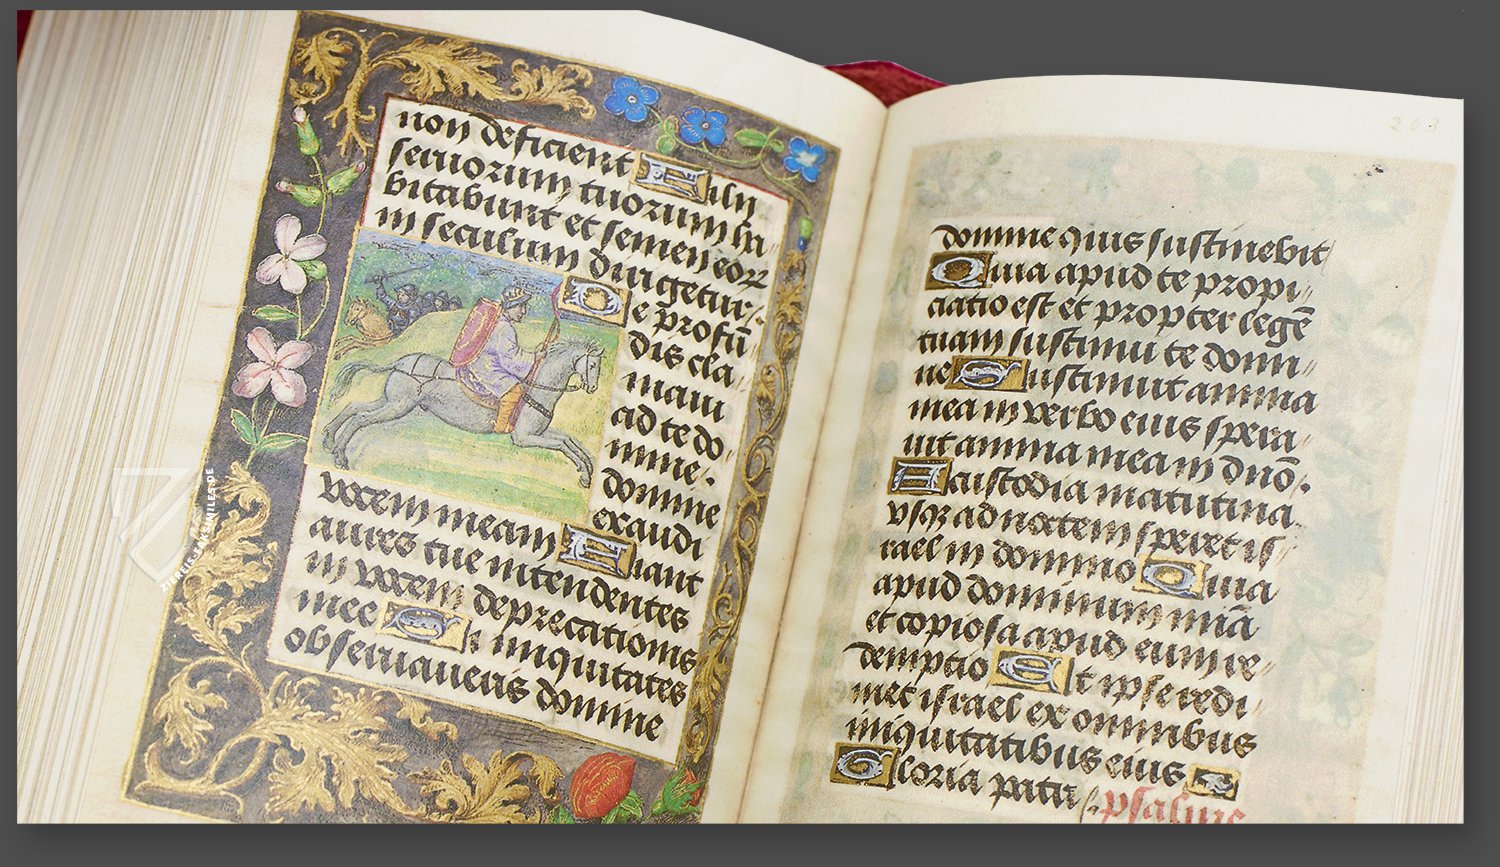 non deficient Filij
seruorum tuorum ha//
bitabunt et semen eorꝝ
in seculum dirigetur.
De profū
dis cla//
maui
ad te do
mine.
domine
exaudi
vocem meam Fiant
aures tue intendentes
in vocem deprecationis
mee Si iniquitates
obseruaueris domine
203
domine quis sustinebit
Quia apud te propi//
ciatio est et propter legē
tuam sustinui te domi//
ne Sustinuit anima
mea in verbo eius spera//
uit anima mea in dnō.
A custodia matutina
vsqꝫ ad noctem speret is//
rael in domino Quia
apud dominum mīa
et copiosa apud eum re//
demptio Et ipse redi//
met israel ex omnibus
iniquitatibus eius
Gloria patri psalmus
ZIEREIS FAKSIMILES.DE